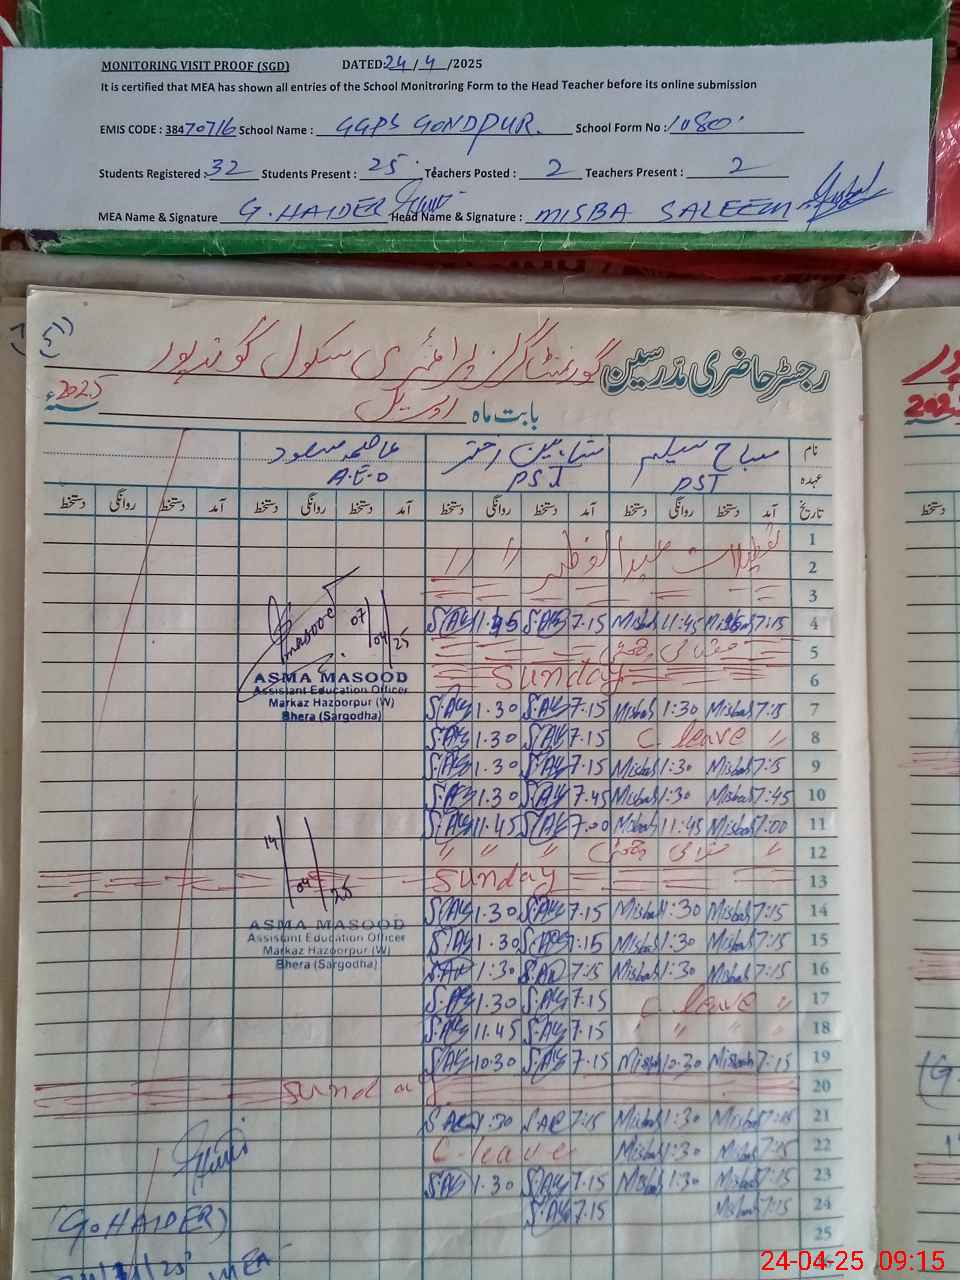 MONITORING VISIT PROOF (SGD) DATED: 24 / 4 /2025
It is certified that MEA has shown all entries of the School Monitroring Form to the Head Teacher before its online submission
EMIS CODE : 38470716 School Name : GGPS GONDPUR. School Form No : 1080
Students Registered : 32 Students Present : 25 Teachers Posted : 2 Teachers Present : 2
MEA Name & Signature G. HAIDER Head Name & Signature : MISBA SALEEM
رجسٹر حاضری مدرسین گورنمنٹ گرلز پرائمری سکول گوندپور
بابت ماہ اپریل 2025ء
نام مسباح سلیم شاہین اختر عاصمہ مسعود
عہدہ PST PST A.E.O
تاریخ آمد دستخط روانگی دستخط آمد دستخط روانگی دستخط آمد دستخط روانگی دستخط آمد دستخط روانگی دستخط
1
2 تعطیلات عید الفطر " "
3
4 7:15 Misbah 11:45 Misbah 7.15 S.AK 11.45 S.AK
5 مقامی چھٹی
6 Sunday
7 7:15 Misbah 1:30 Misbah 7.15 S.AK 1.30 S.AK
8 C. leave " 7.15 S.AK 1.30 S.AK
9 7:15 Misbah 1:30 Misbah 7.15 S.AK 1.30 S.AK
10 7:45 Misbah 1:30 Misbah 7.45 S.AK 1.30 S.AK
11 7:00 Misbah 11:45 Misbah 7.00 S.AK 11.45 S.AK
12 " مقامی چھٹی " " " "
13 Sunday
14 7:15 Misbah 1:30 Misbah 7.15 S.AK 1.30 S.AK
15 7:15 Misbah 1:30 Misbah 7:15 S.AK 1.30 S.AK
16 7:15 Misbah 1:30 Misbah 7:15 S.AK 1:30 S.AK
17 C. leave " 7.15 S.AK 1.30 S.AK
18 " " " " 7.15 S.AK 11.45 S.AK
19 7:15 Misbah 10:30 Misbah 7.15 S.AK 10.30 S.AK
20 Sunday
21 7:15 Misbah 1:30 Misbah 7:15 S.AK 1:30 S.AK
22 7:15 Misbah 1:30 Misbah C. leave
23 7:15 Misbah 1:30 Misbah 7.15 S.AK 1.30 S.AK
24 7:15 Misbah 7.15 S.AK
25
Masood 07/04/25
ASMA MASOOD
Assistant Education Officer
Markaz Hazoorpur (W)
Bhera (Sargodha)
14/04/25
ASMA MASOOD
Assistant Education Officer
Markaz Hazoorpur (W)
Bhera (Sargodha)
(G. HAIDER)
MEA
24-04-25 09:15